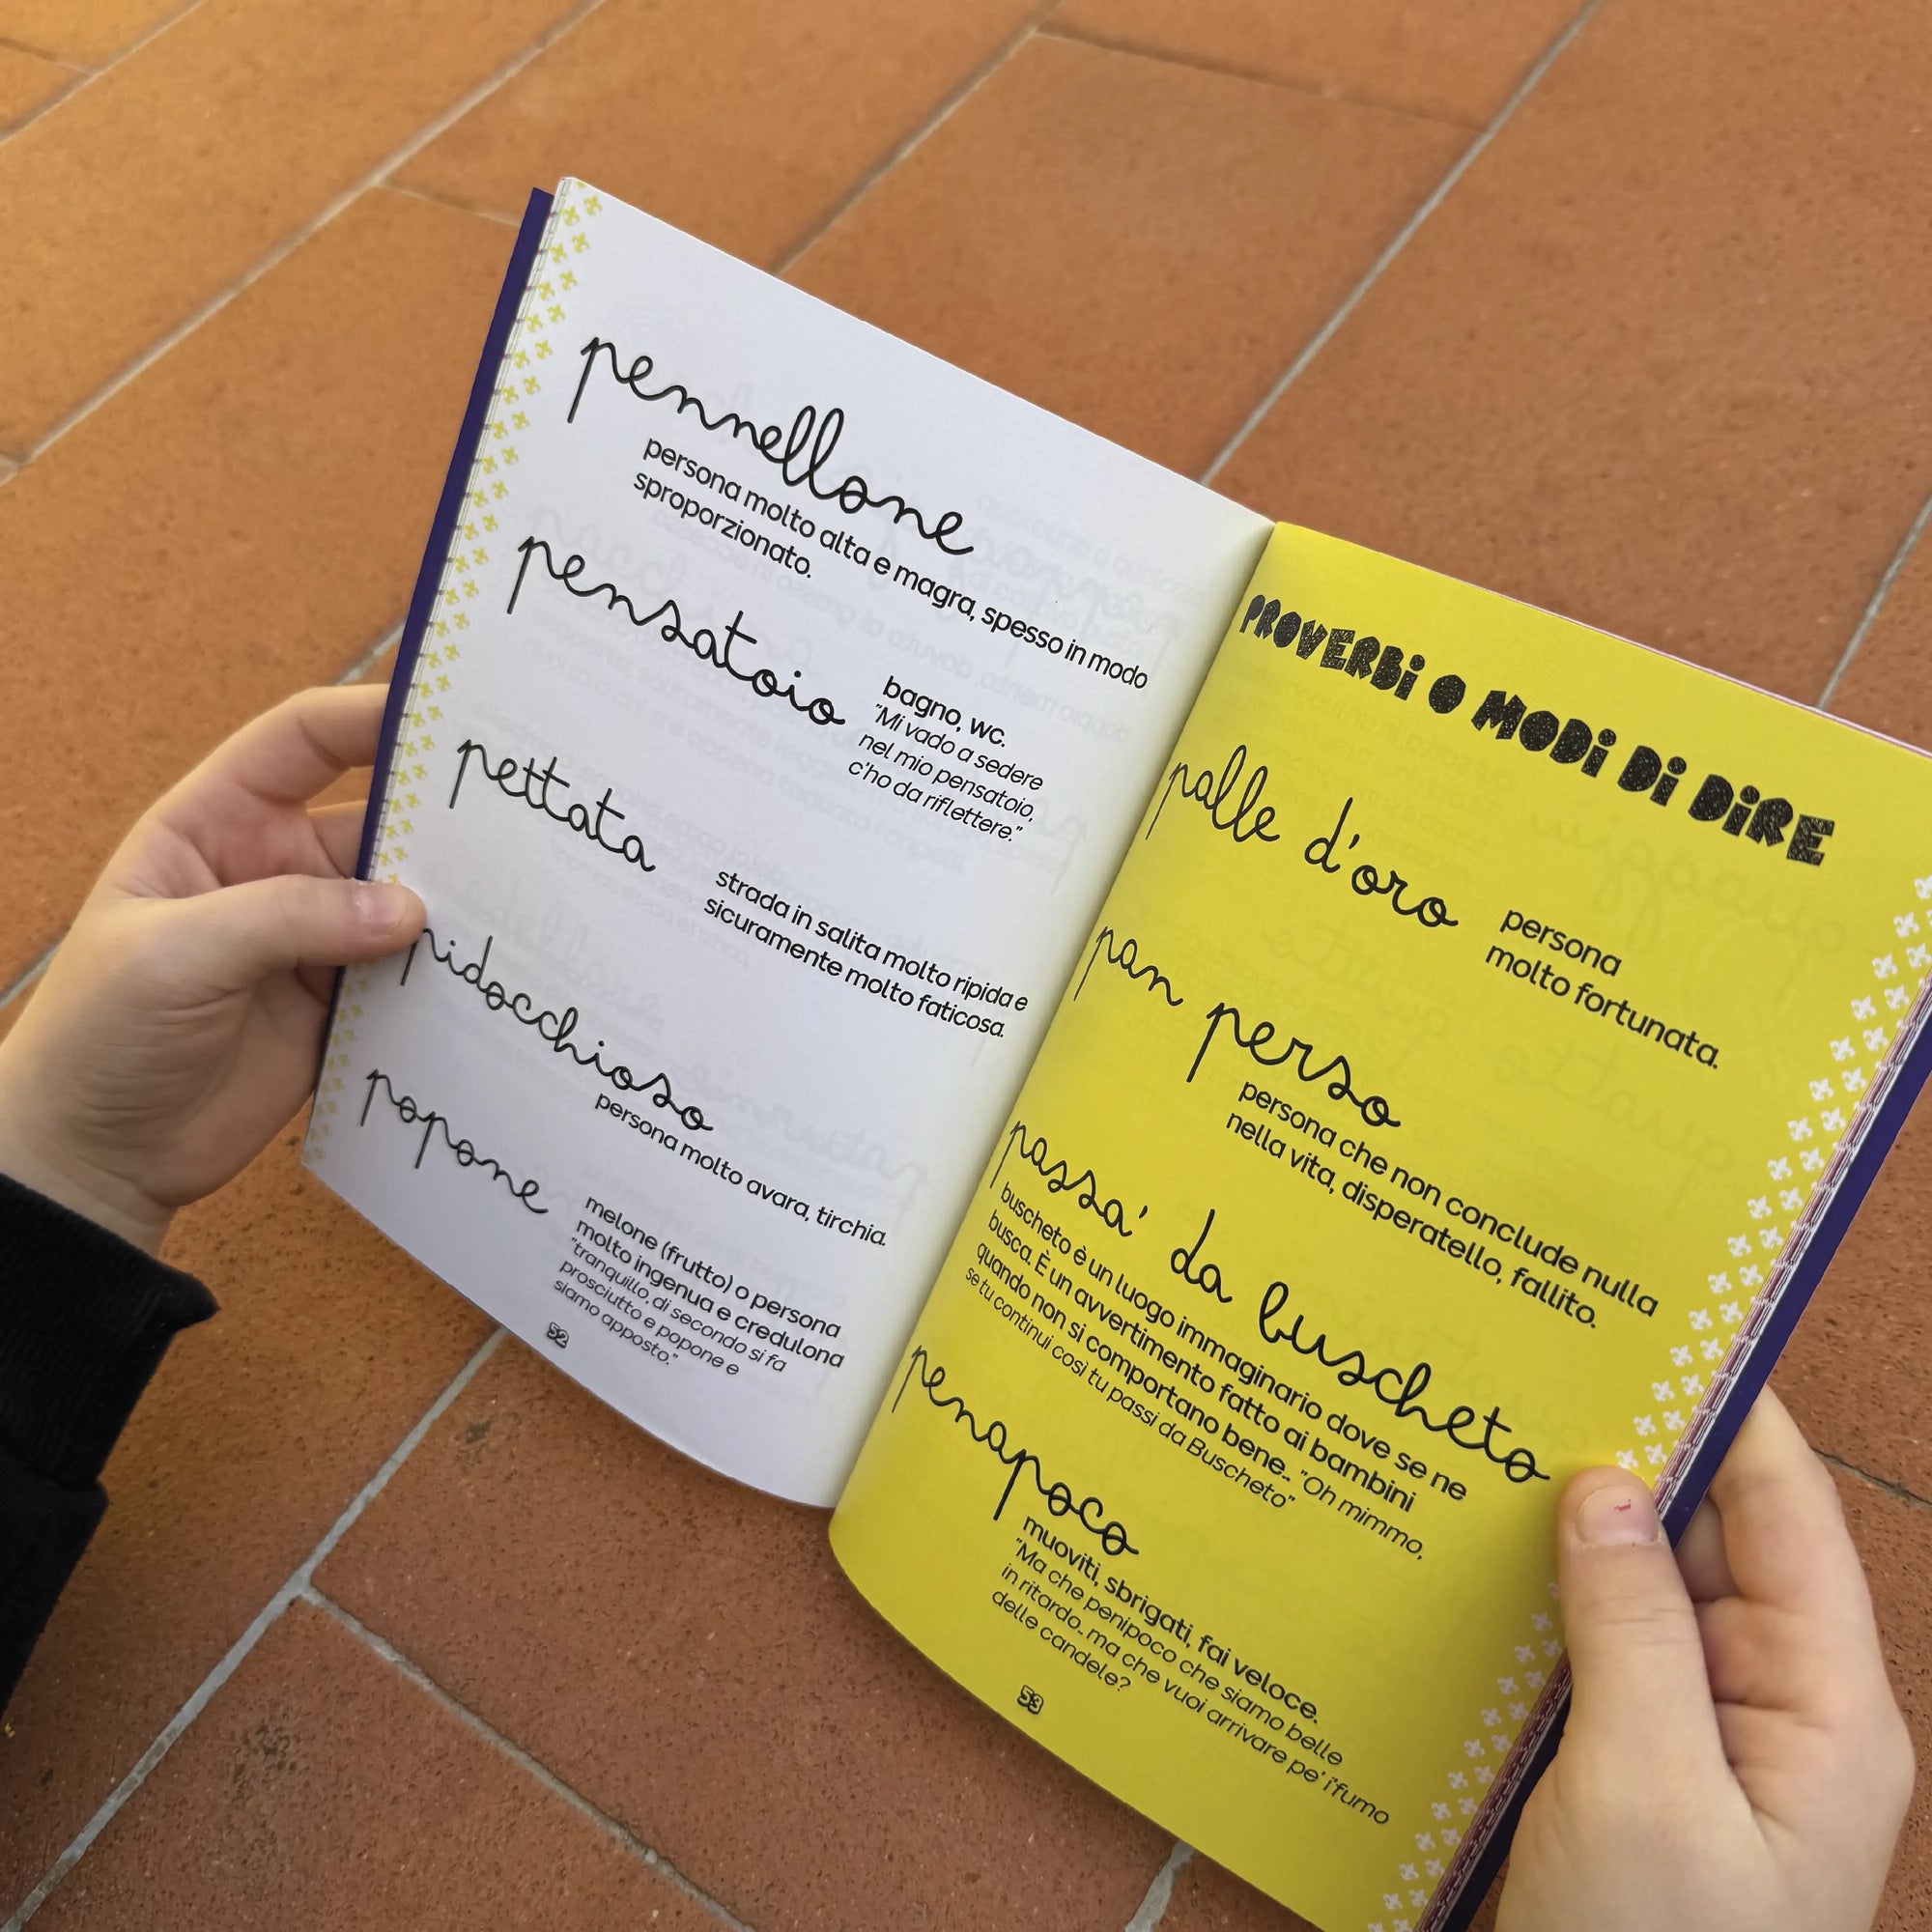 pennellone
persona molto alta e magra, spesso in modo
sproporzionato.
pensatoio
bagno, wc.
"Mi vado a sedere
nel mio pensatoio,
c'ho da riflettere."
pettata
strada in salita molto ripida e
sicuramente molto faticosa.
pidocchioso
persona molto avara, tirchia.
popone
melone (frutto) o persona
molto ingenua e credulona
"tranquillo, di secondo si fa
prosciutto e popone e
siamo apposto."
52
PROVERBi O MODi Di DiRE
palle d'oro
persona
molto fortunata.
pan perso
persona che non conclude nulla
nella vita, disperatello, fallito.
passa' da buscheto
buscheto è un luogo immaginario dove se ne
busca. È un avvertimento fatto ai bambini
quando non si comportano bene.. "Oh mimmo,
se tu continui così tu passi da Buscheto"
penapoco
muoviti, sbrigati, fai veloce.
"Ma che penipoco che siamo belle
in ritardo.. ma che vuoi arrivare pe' i'fumo
delle candele?
53